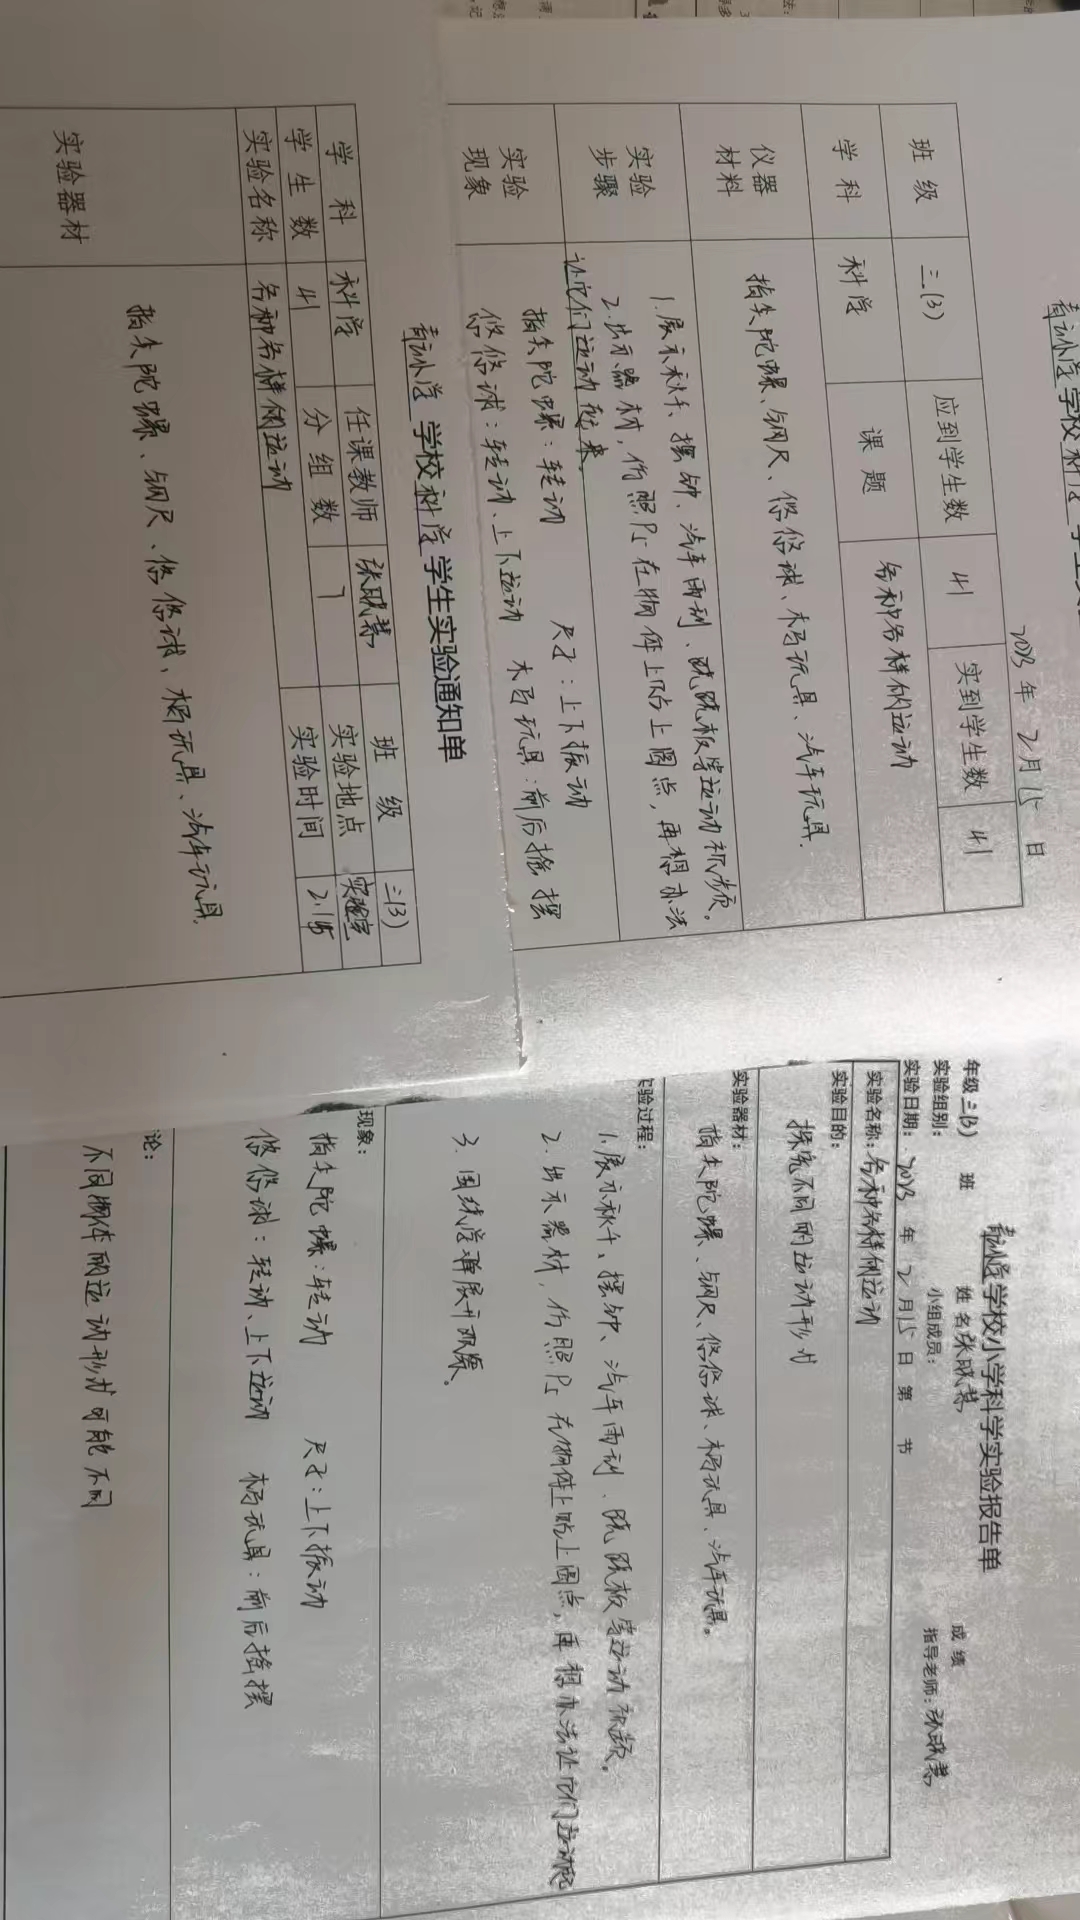 学校科学学生实
2023年2月15日
班级 三(3) 应到学生数 41 实到学生数 41
学科 科学 课题 各种各样的运动
仪器材料 指尖陀螺、钢尺、悠悠球、木马玩具、汽车玩具.
实验步骤 1.展示秋千、摆钟、汽车雨刮、跷跷板等运动视频。
2.出示器材,仿照P2在物件上贴上圆点,再想办法
让它们运动起来。
实验现象 指尖陀螺:转动 尺子:上下振动
悠悠球:转动、上下运动 木马玩具:前后摇摆
学校科学学生实验通知单
学科 科学 任课教师 班级 三(3)
学生数 41 分组数 7 实验地点 实验室
实验名称 各种各样的运动 实验时间 2.15
实验器材 指尖陀螺、钢尺、悠悠球、木马玩具、汽车玩具.
学校小学科学实验报告单
年级 三(3) 班 姓名 成绩
实验组别: 小组成员: 指导老师:
实验日期:2023年2月15日第 节
实验名称:各种各样的运动
实验目的:
探究不同的运动形式
实验器材:
指尖陀螺、钢尺、悠悠球、木马玩具、汽车玩具。
实验过程:
1.展示秋千、摆钟、汽车雨刮、跷跷板等运动视频。
2.出示器材,仿照P2在物件上贴上圆点,再想办法让它们运动起
3.围绕学弹展开观察。
现象:
指尖陀螺:转动 尺子:上下振动
悠悠球:转动、上下运动 木马玩具:前后摇摆
论:
不同物体的运动形式可能不同